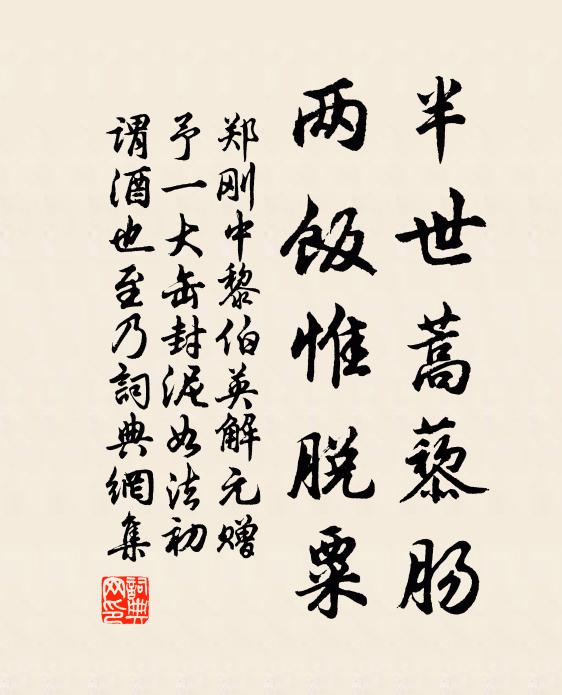 半世蒿藜肠
两飯惟脱粟
郑刚中黎伯英解元赠
予一大缶封泥如法初
谓酒也至乃詞典網集
詞典网印